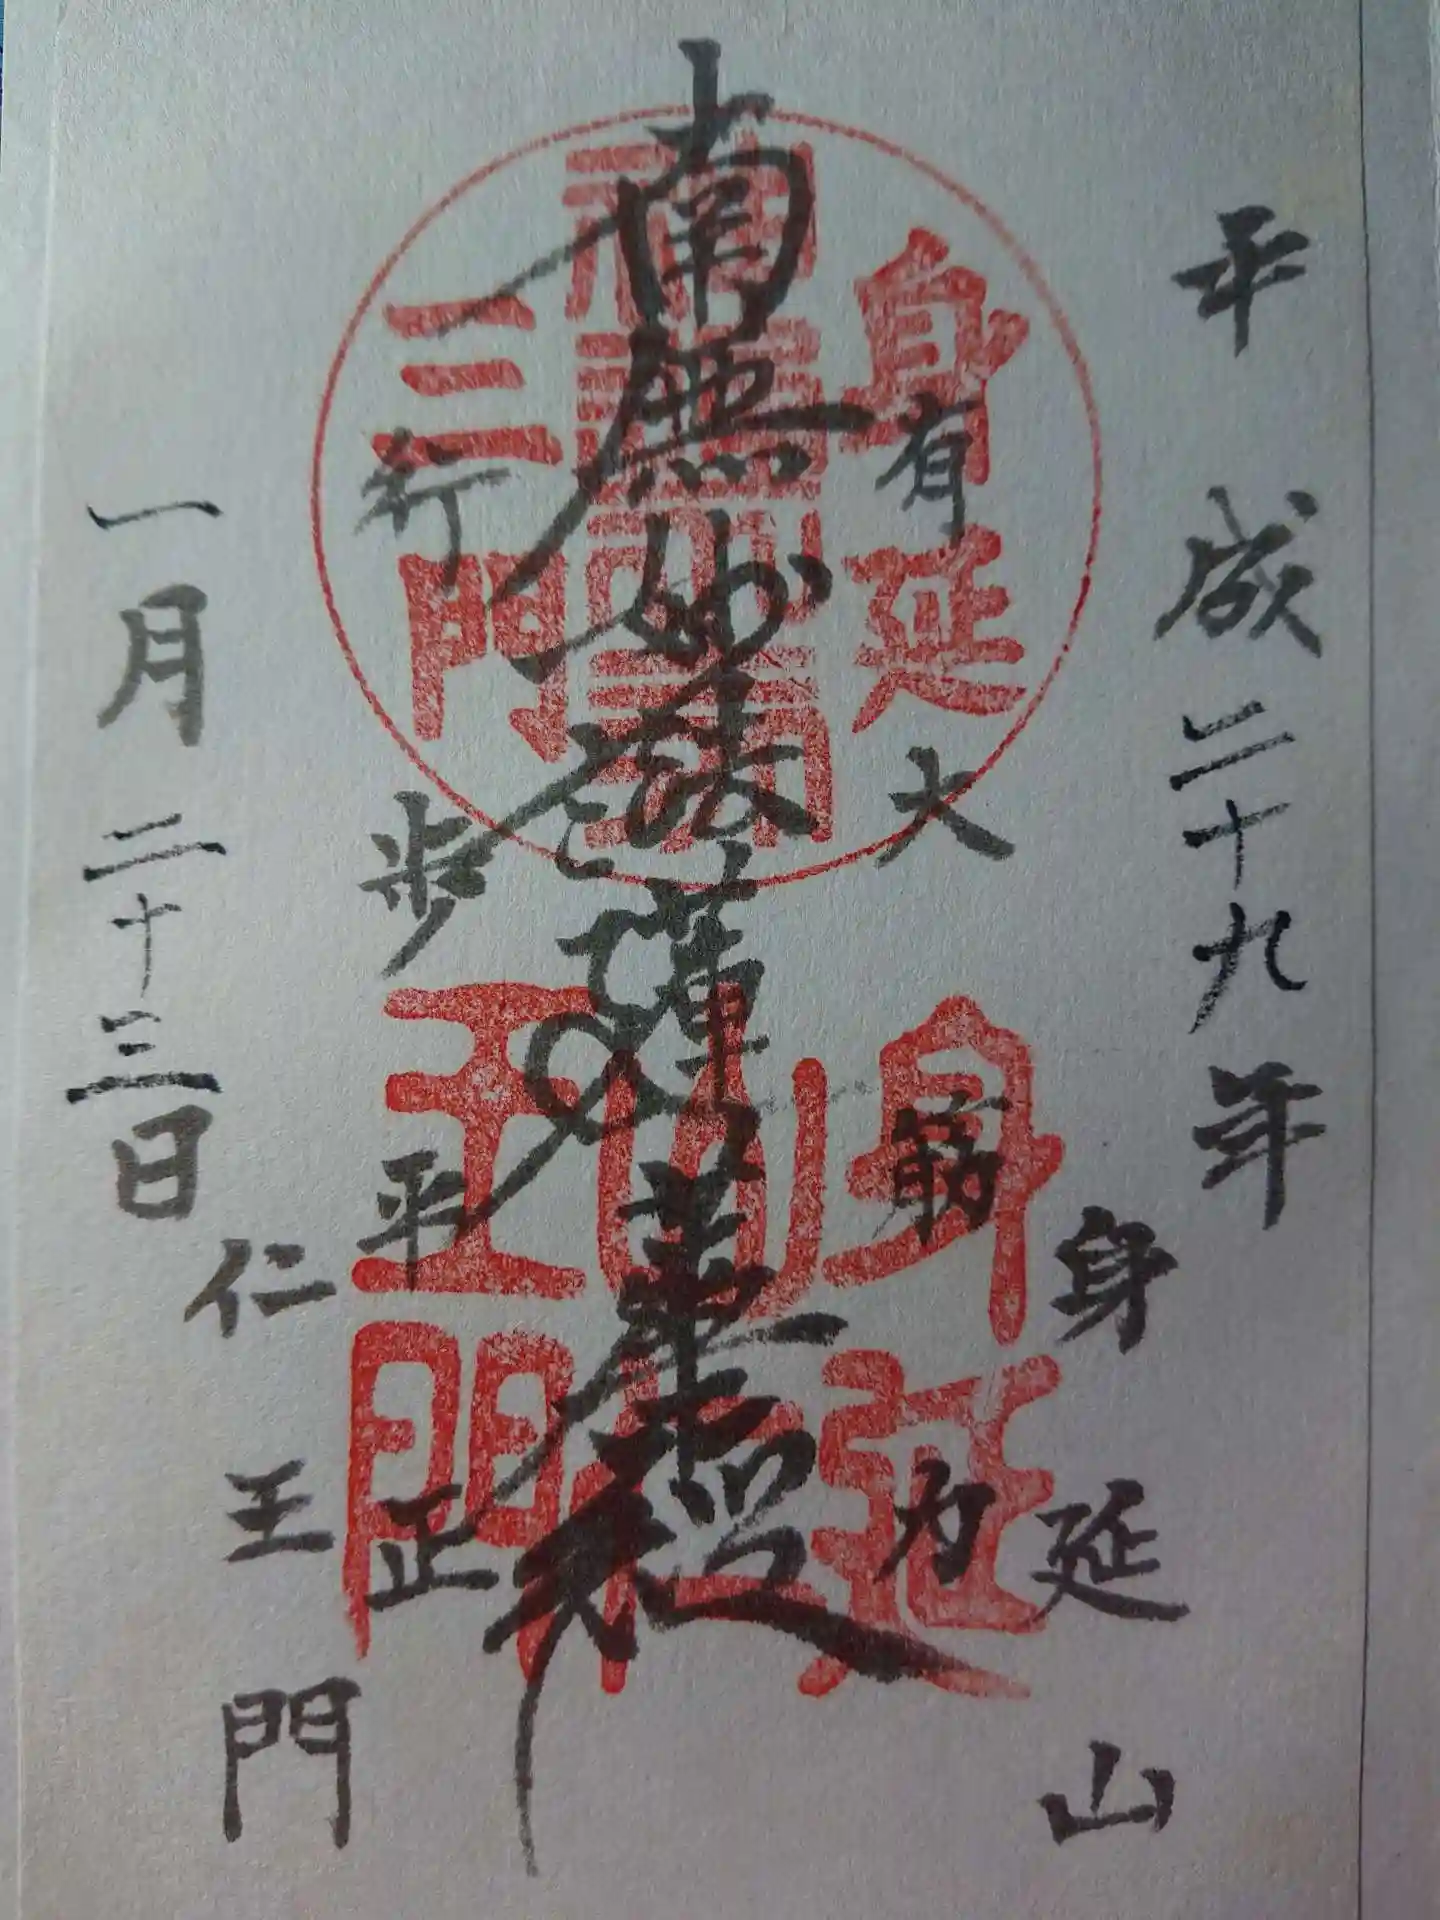 平成二十九年
身延山
有大筋力
南無妙法蓮華経
行歩平正
一月二十三日
仁王門
身延
三門
身延山
王門